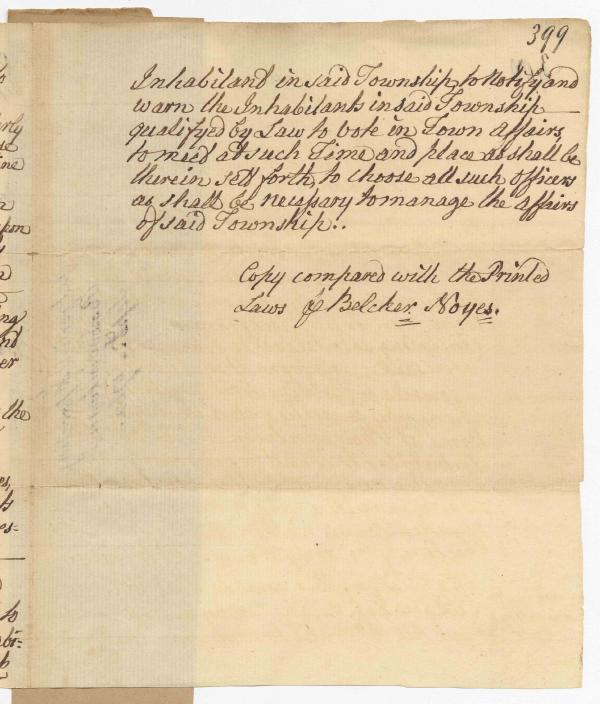 399
Inhabitant in said Township, to Notify and
warn the Inhabitants in said Township
qualifyed by Law to vote in Town affairs,
to meet at such Time and place as shall be
therein sett forth, to choose all such officers
as shall be necessary to manage the affairs
of said Township:.
Copy compared with the Printed
Laws ⅌ Belcher Noyes.
the
to